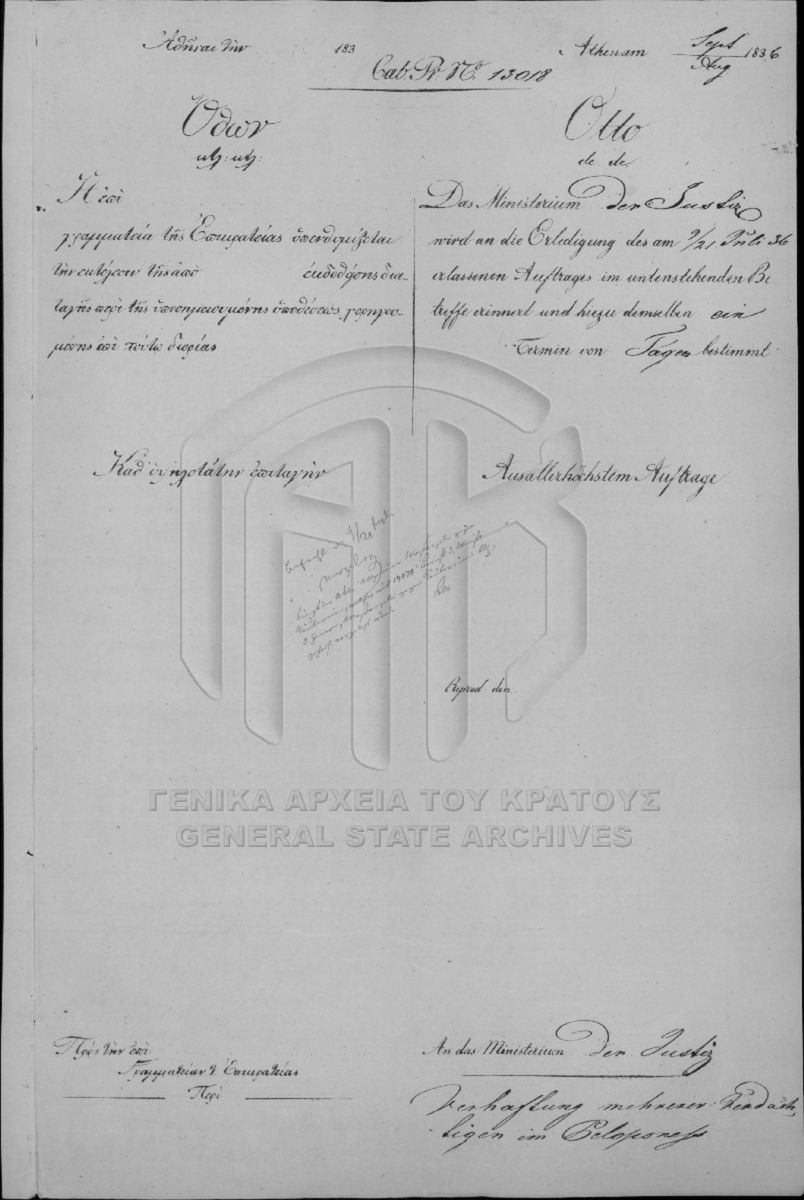 Ἀθῆναι τὴν 183
Athen am Sept / Aug 1836
Cab. Pr. No. 13018
Ὄθων
κτλ: κτλ:
Ἡ ἐπὶ
γραμματεία τῆς Ἐπικρατείας ὑπενθυμίζεται
τὴν ἐκτέλεσιν τῆς ἀπὸ ἐκδοθείσης δια-
ταγῆς περὶ τῆς ὑποσημειουμένης ὑποθέσεως, χορηγου-
μένης ἐπὶ τούτῳ διορίας
Καθ' ὑψηλοτάτην ἐπιταγὴν
Otto
etc. etc.
Das Ministerium der Justiz
wird an die Erledigung des am 9/21 Juli 36
erlassenen Auftrages im untenstehenden Be-
treffe erinnert und hiezu demselben ein
Termin von Tagen bestimmt
Aus allerhöchstem Auftrage
Exped den
ΓΕΝΙΚΑ ΑΡΧΕΙΑ ΤΟΥ ΚΡΑΤΟΥΣ
GENERAL STATE ARCHIVES
Πρὸς τὴν ἐπὶ
Γραμματείαν τ. Ἐπικρατείας
Περὶ
An das Ministerium der Justiz
Verhaftung mehrerer Verdäch-
tigen im Peloponnes